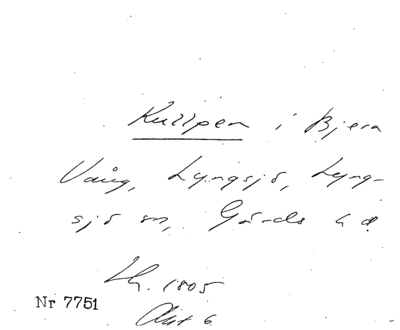 Kullpen i Bjera
Vång, Lyngsjö, Lyng-
sjö sn, Gärds hd.
Lh. 1805
Akt 6
Nr 7751